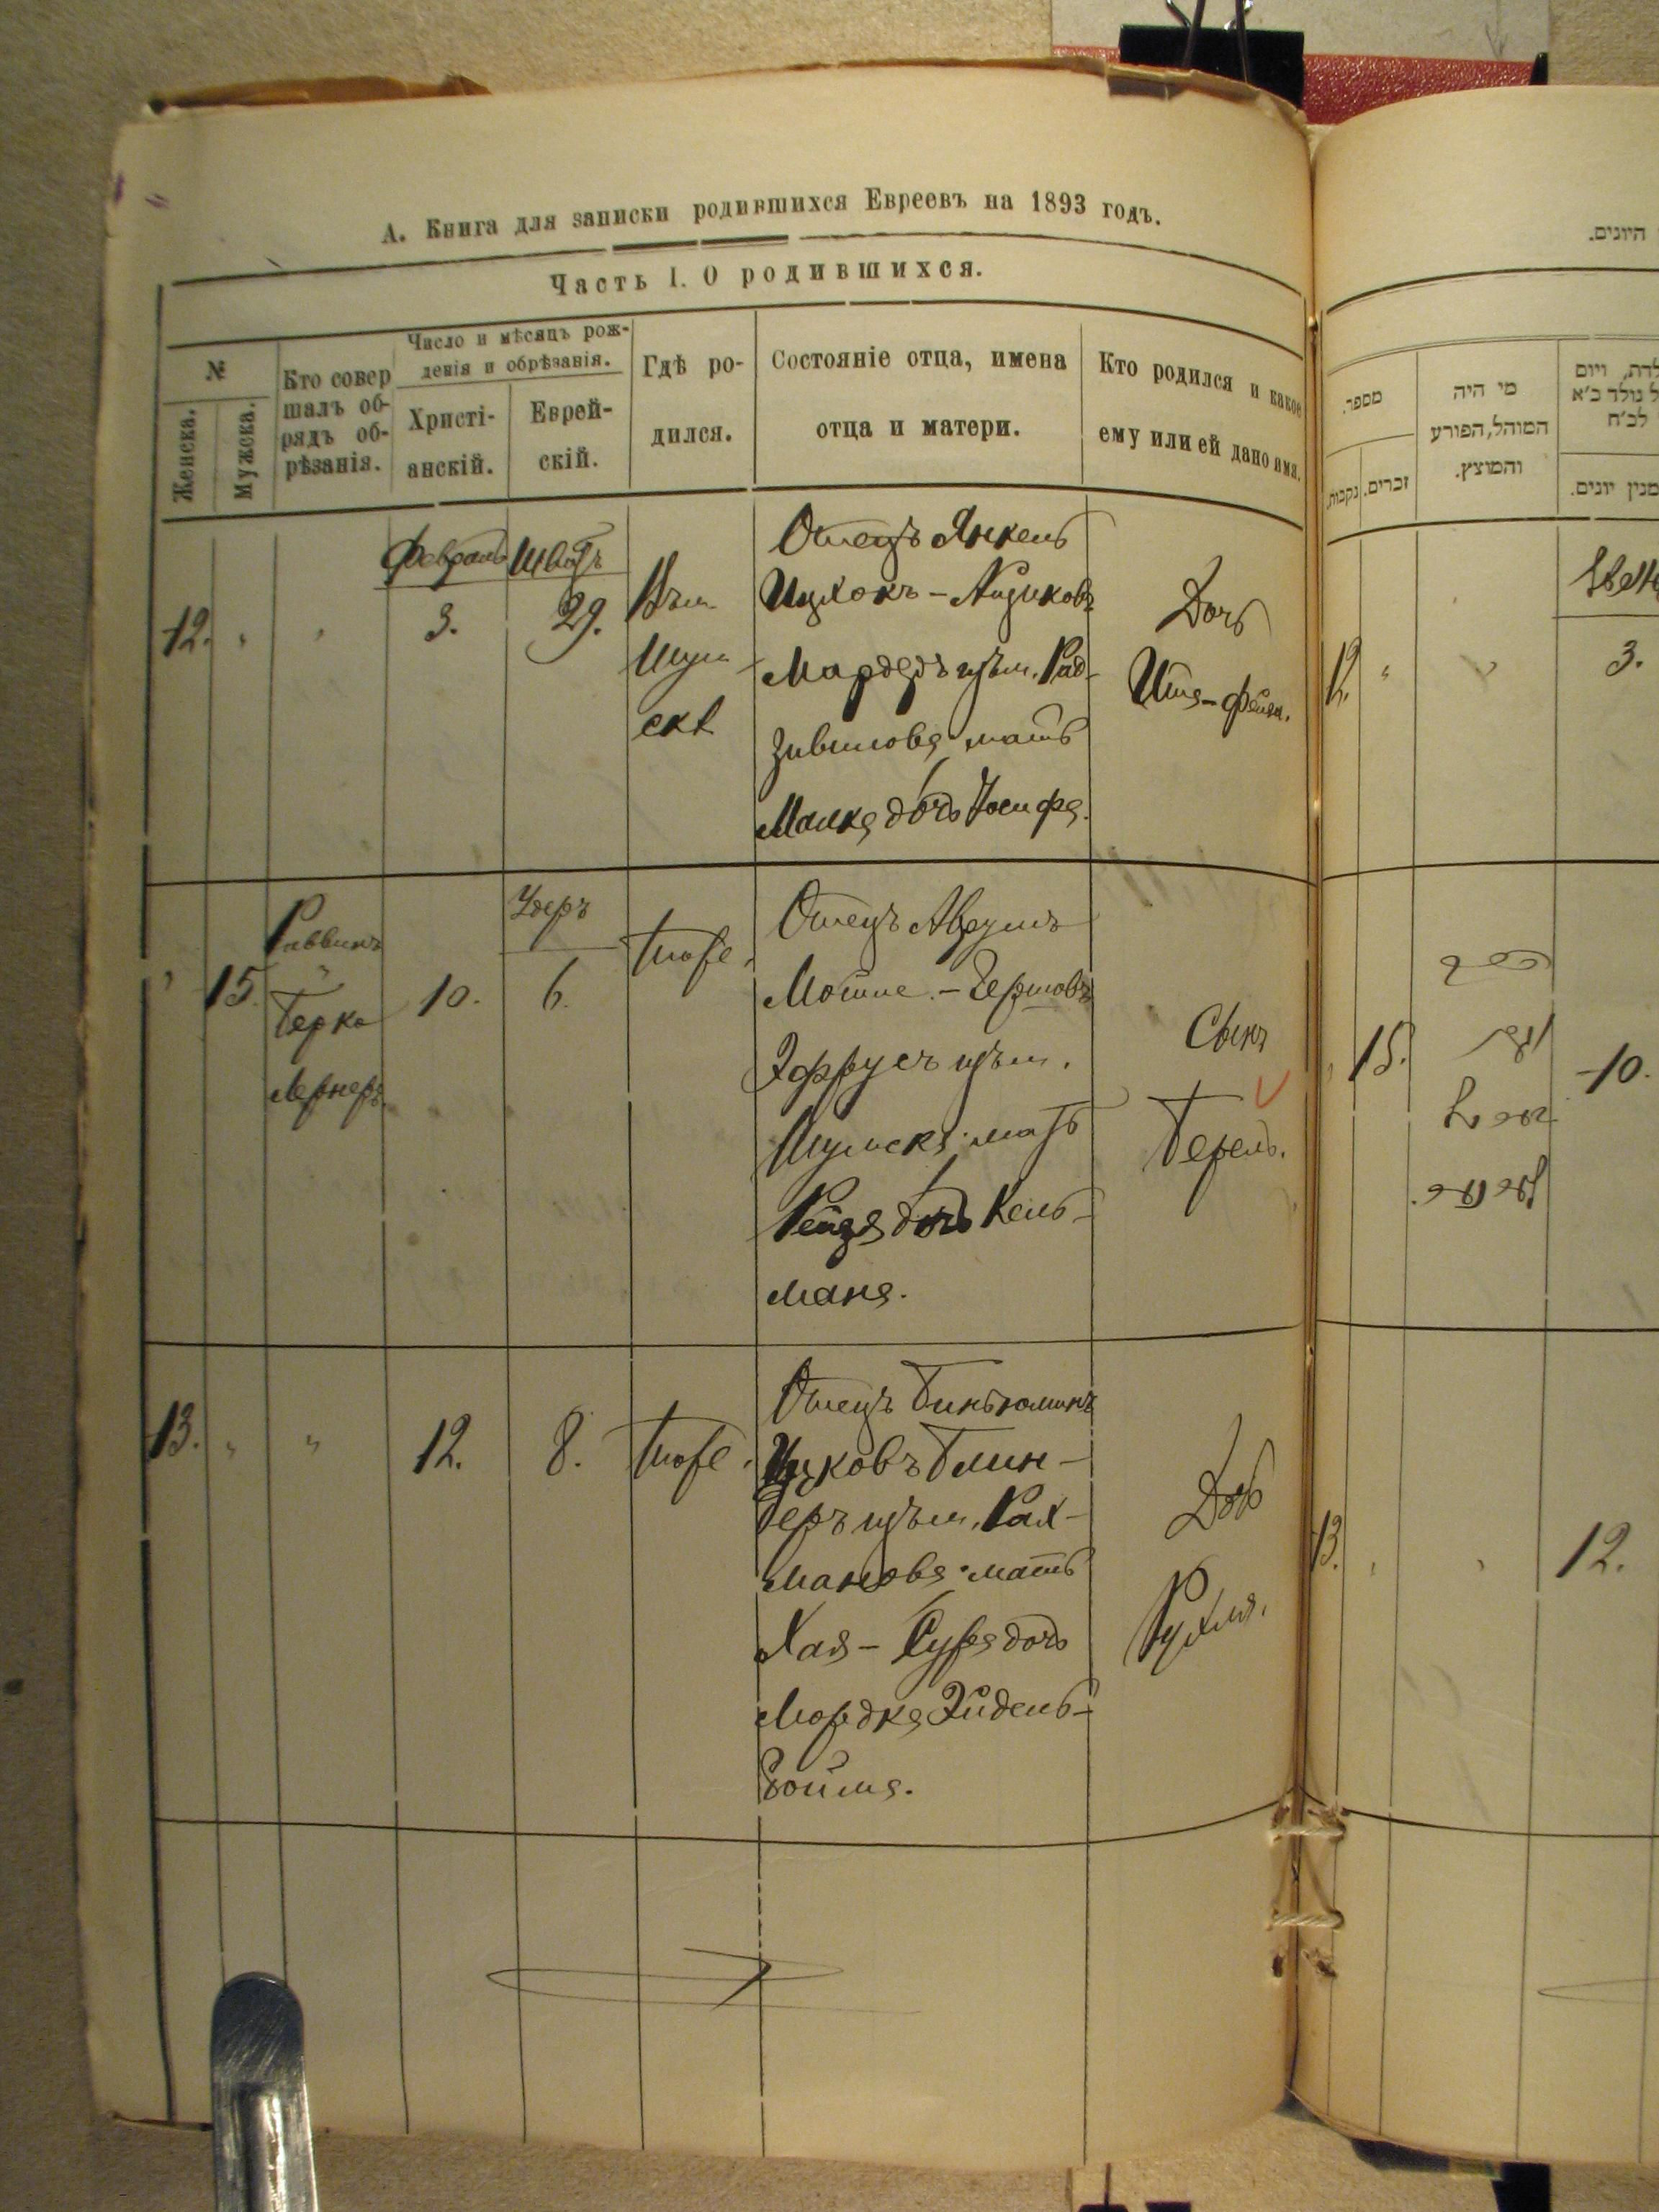 А. Книга для записки родившихся Евреевъ на 1893 годъ.
Часть I. О родившихся.
№
Женска.
Мужска.
Кто совер
шалъ об-
рядъ об-
рѣзанія.
Число и мѣсяцъ рож-
денія и обрѣзанія.
Христі-
анскій.
Еврей-
скій.
Гдѣ ро-
дился.
Состояніе отца, имена
отца и матери.
Кто родился и какое
ему или ей дано имя.
12.
Февраль
3.
Шватъ
29.
Въ м.
Шум
скѣ
Отецъ Янкель
Ицхокъ-
Мардеръ мѣщ. Рад-
зивилова мать
Малка дочь Іосифа.
Дочь
15.
Раввинъ
Берко
Лернеръ
10.
Удеръ
6.
Тоже.
Отецъ Аврумъ
Мошие-Гершовъ
Эфрусъ мѣщ.
Шумска мать
Рейзя дочь Кель-
мана.
Сынъ
Берель.
13.
12.
8.
Тоже.
Отецъ Биньюминъ
Ицковъ Блин-
деръ мѣщ. Рах-
манова мать
Хая-Сура дочь
Мордка Эйдель-
Дочь
Рухля.
היונים.
מספר.
נקבות.
זכרים.
מי היה
המוהל, הפורע
והמוצץ.
לדת, ויום
ל נולד כ"א
לכ"ח
מנין יונים.
12.
3.
15.
10.
13.
12.